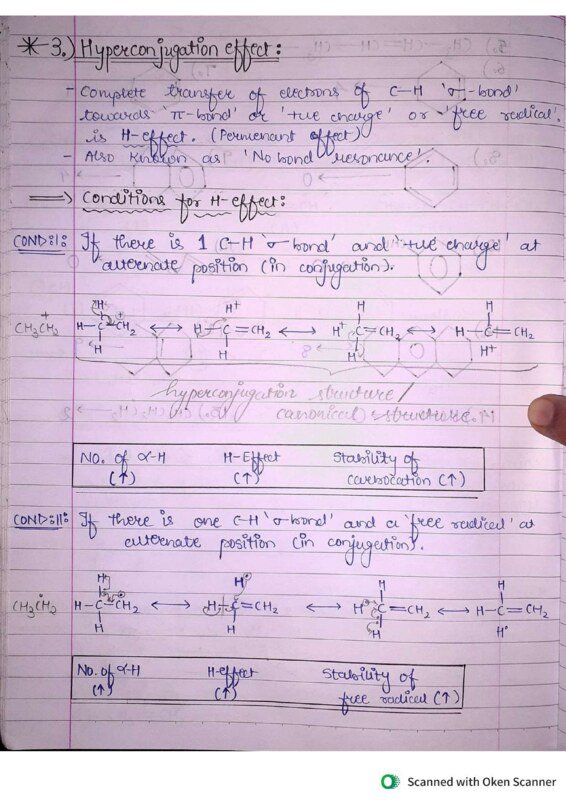 * 3.) Hyperconjugation effect:
- Complete transfer of electrons of C-H 'σ-bond'
towards 'π-bond' or '+ve charge' or 'free radical'.
is H-effect. (Permenant effect)
- Also known as 'No bond resonance'.
⇒ Conditions for H-effect:
COND:I: If there is 1 C-H 'σ-bond' and '+ve charge' at
alternate position (in conjugation).
H H+ H H
CH3C+H2 H-C-C+H2 ↔ H-C=CH2 ↔ H+ C=CH2 ↔ H-C=CH2
H H H H+
hyperconjugation structure/
canonical structure.
No. of α-H H-Effect Stability of
(↑) (↑) carbocation (↑)
COND:II: If there is one C-H 'σ-bond' and a 'free radical' at
alternate position (in conjugation).
H H• H H
CH3ĊH2 H-C-ĊH2 ↔ H-C=CH2 ↔ H• C=CH2 ↔ H-C=CH2
H H H H•
No. of α-H H-effect Stability of
(↑) (↑) free radical (↑)
Scanned with Oken Scanner